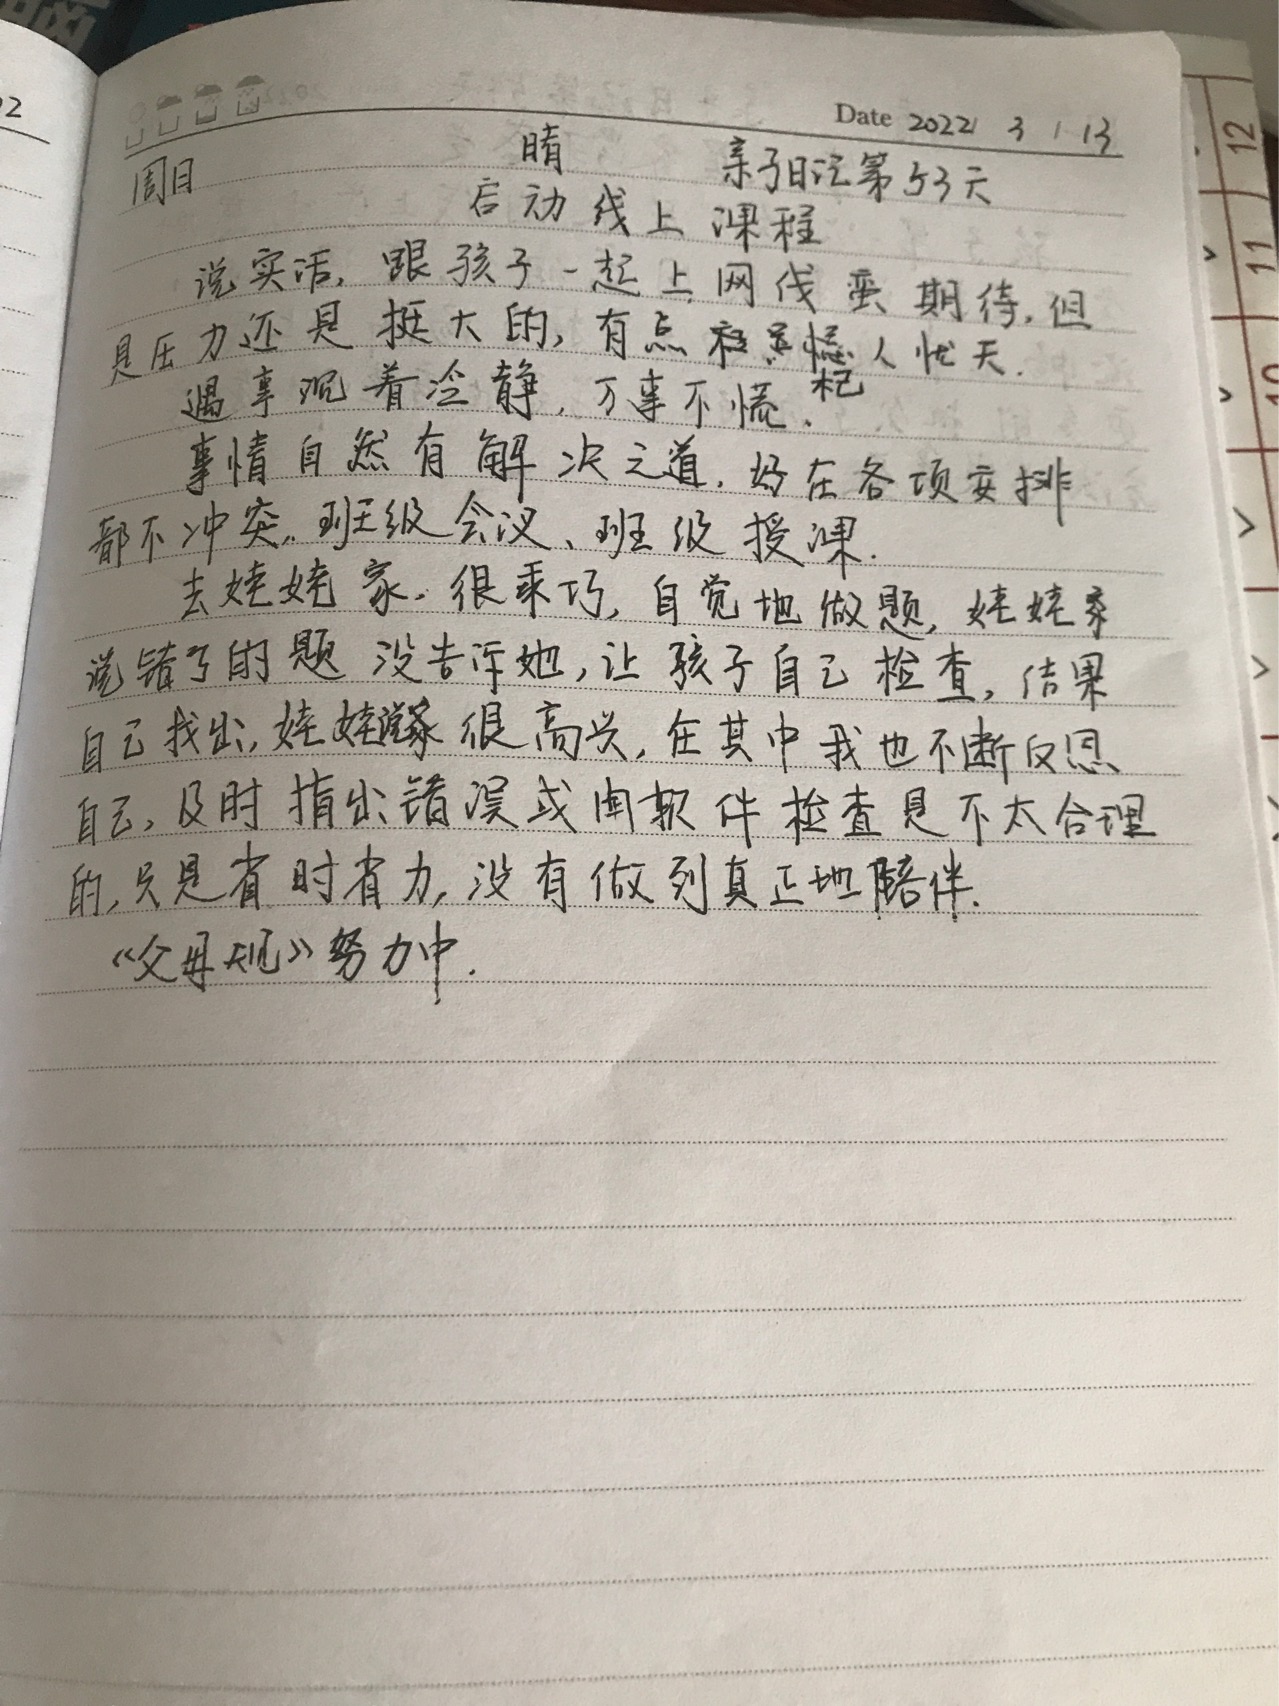 02
Date 2022 / 3 / 13
周日 晴 亲子日记第53天
启动线上课程
说实话，跟孩子一起上网伐蛮期待，但
是压力还是挺大的，有点杞人忧天.
遇事沉着冷静，万事不慌.
事情自然有解决之道，好在各项安排
都不冲突，班级会议、班级授课.
去娃娃家.很乖巧，自觉地做题，娃娃家
说错了的题没告诉她，让孩子自己检查，结果
自己找出，娃娃家很高兴，在其中我也不断反思
自己，及时指出错误或用软件检查是不太合理
的，只是省时省力，没有做到真正地陪伴.
《父母规》努力中.
12
11
10